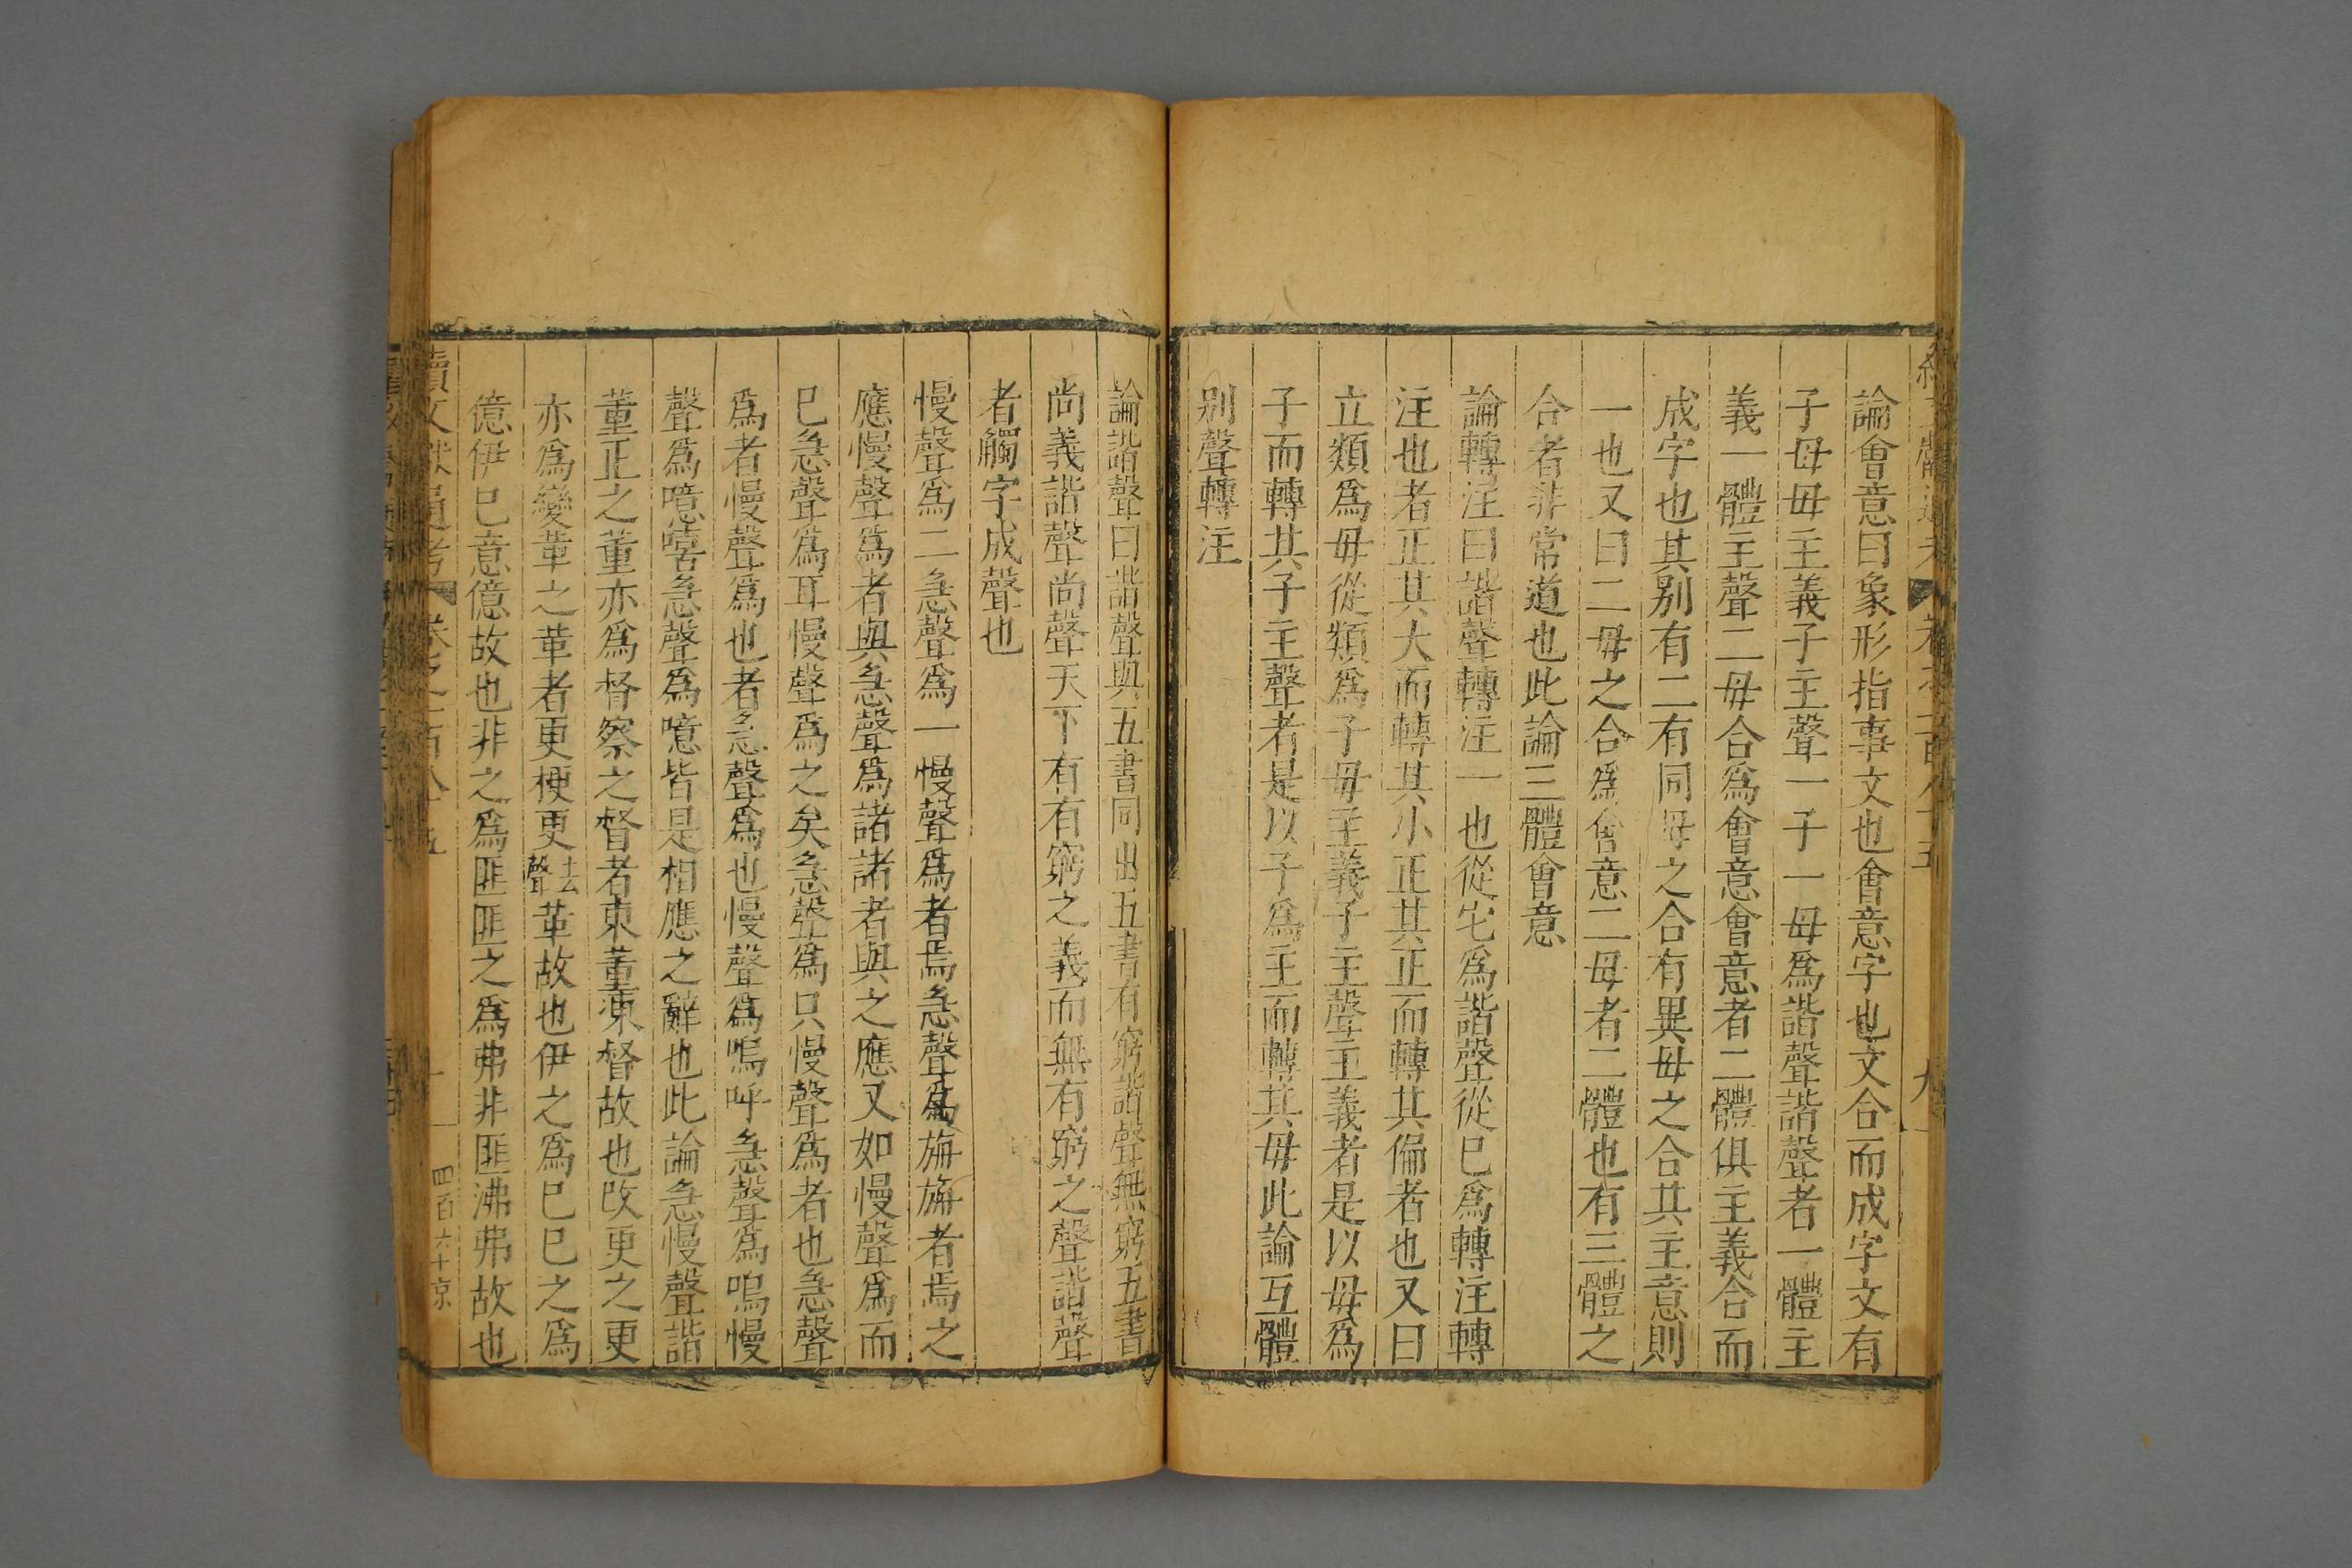 論會意曰象形指事文也會意字也文合而成字文有
子母母主義子主聲一子一母爲諧聲諧聲者一體主
義一體主聲二母合爲會意會意者二體俱主義合而
成字也其别有二有同母之合有異母之合其主意則
一也又曰二母之合爲會意二母者二體也有三體之
合者非常道也此論三體會意
論轉注曰諧聲轉注一也從宅爲諧聲從巳爲轉注轉
注也者正其大而轉其小正其正而轉其偏者也又曰
立類爲母從類爲子母主義子主聲主義者是以母爲
子而轉其子主聲者是以子爲主而轉其母此論互體
别聲轉注
論諧聲曰諧聲與五書同出五書有窮諧聲無窮五書
尚義諧聲尚聲天下有有窮之義而無有窮之聲諧聲
者觸字成聲也
慢聲爲二急聲爲一慢聲爲者焉急聲爲旃旃者焉之
應慢聲爲者與急聲爲諸諸者與之應又如慢聲爲而
巳急聲爲耳慢聲爲之矣急聲爲只慢聲爲者也急聲
爲者慢聲爲也者急聲爲也慢聲爲嗚呼急聲爲嗚慢
聲爲噫嘻急聲爲噫皆是相應之辭也此論急慢聲諧
董正之董亦爲督察之督者東董凍督故也改更之更
亦爲變革之革者更梗更去聲革故也伊之爲巳巳之爲
億伊巳意億故也非之爲匪匪之爲弗非匪沸弗故也
續文獻通考 卷之一百八十五
四百六十京